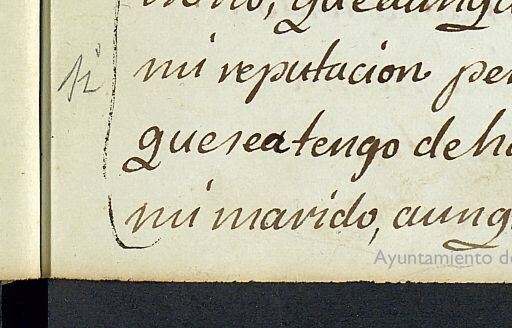 mi reputacion pe
que sea tengo de h
mi marido, aunq
Ayuntamiento de